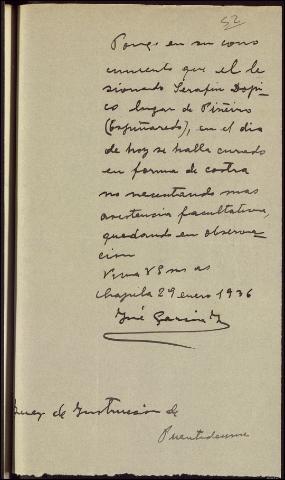 52
Pongo en su cono
cimiento que el le
sionado Serafin Dopi
co lugar de Piñeiro
(Espiñaredo), en el dia
de hoy se halla curado
en forma de costra
no necesitando mas
asistencia facultativa,
quedando en observa
cion
Chapela 29 enero 1936
José Garcia
Juez de Instrucción de
Puentedeume